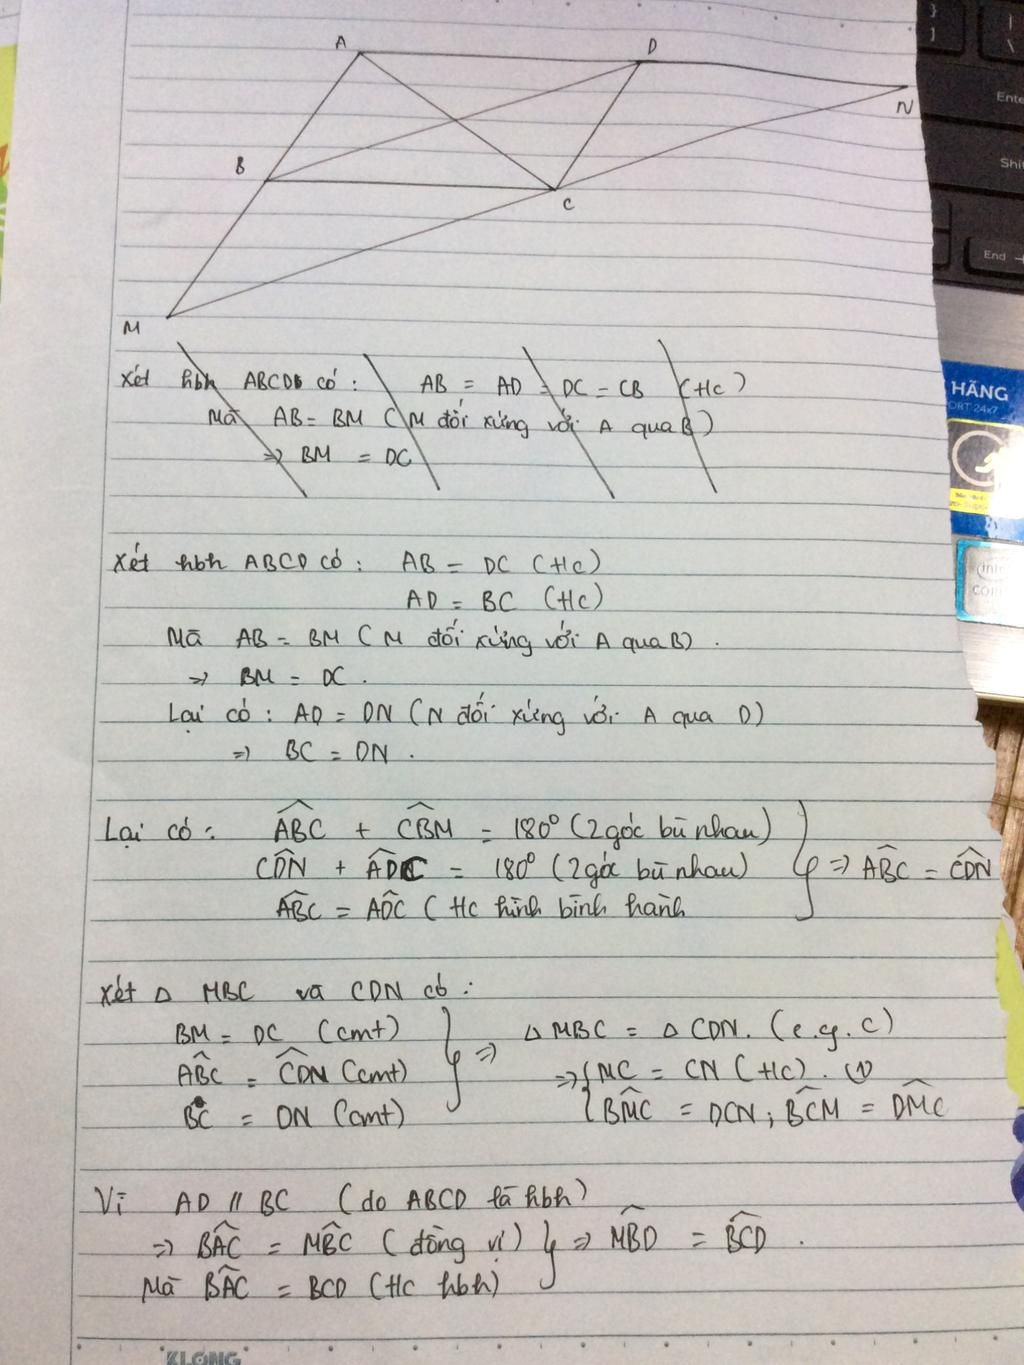 A
D
N
B
C
M
Enter
Shift
End
HÃNG
ORT 24x7
Xét hbh ABCD có : AB = AD = DC = CB (tc)
Mà AB = BM (M đối xứng với A qua B)
=> BM = DC
Xét hbh ABCD có : AB = DC (tc)
AD = BC (tc)
Mà AB = BM (M đối xứng với A qua B) .
=> BM = DC .
Lại có : AD = DN (N đối xứng với A qua D)
=> BC = DN .
Lại có : ABC + CBM = 180° (2 góc bù nhau)
CDN + ADC = 180° (2 góc bù nhau) } => ABC = CDN
ABC = ADC (tc hình bình hành
Xét △ MBC và CDN có :
BM = DC (cmt) } => △ MBC = △ CDN. (c.g.c)
ABC = CDN (cmt) => { MC = CN (tc) . (1)
BC = DN (cmt) BMC = DCN ; BCM = DMC
Vì AD // BC (do ABCD là hbh)
=> BAC = MBC (đồng vị) } => MBD = BCD .
Mà BAC = BCD (tc hbh)
KLONG